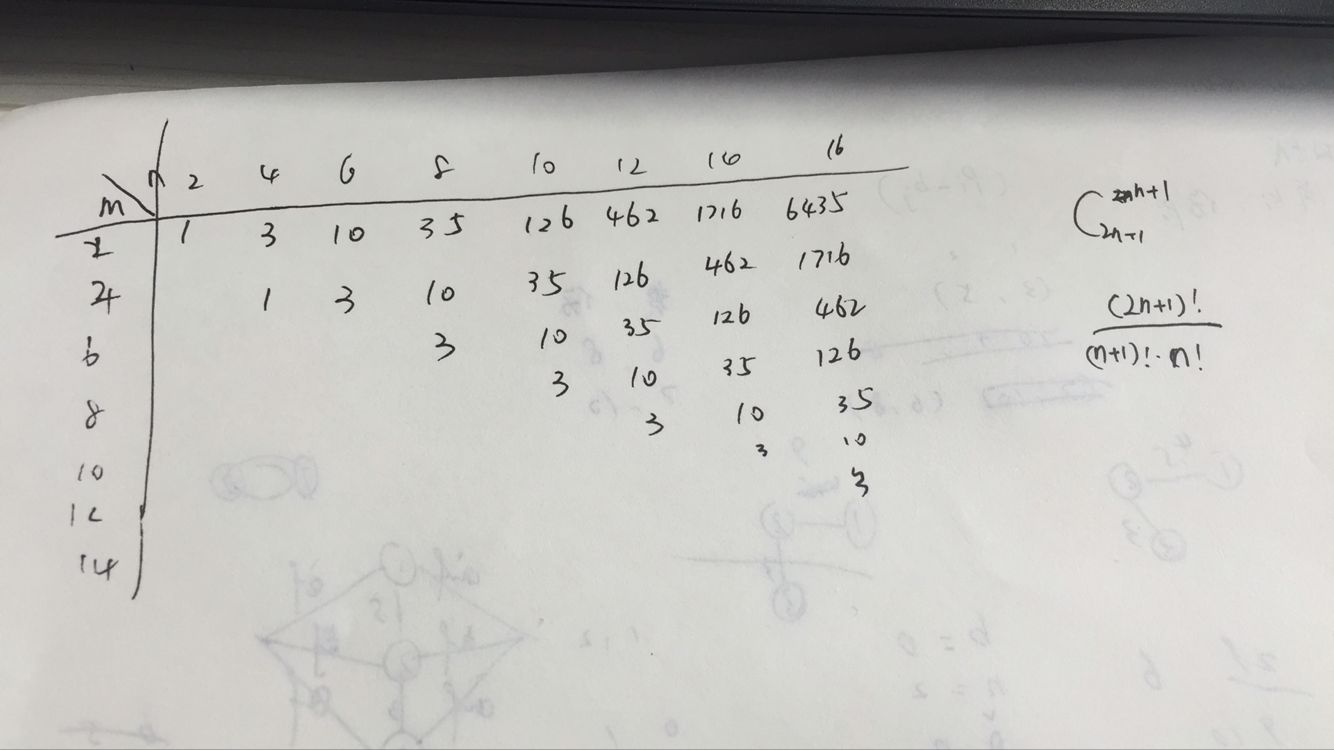 n 2 4 6 8 10 12 14 16
m
2 1 3 10 35 126 462 1716 6435
4 1 3 10 35 126 462 1716
6 3 10 35 126 462
8 3 10 35 126
10 3 10 35
12 3 10
14 3
C 2n+1 n+1
(2n+1)!
(n+1)!·n!